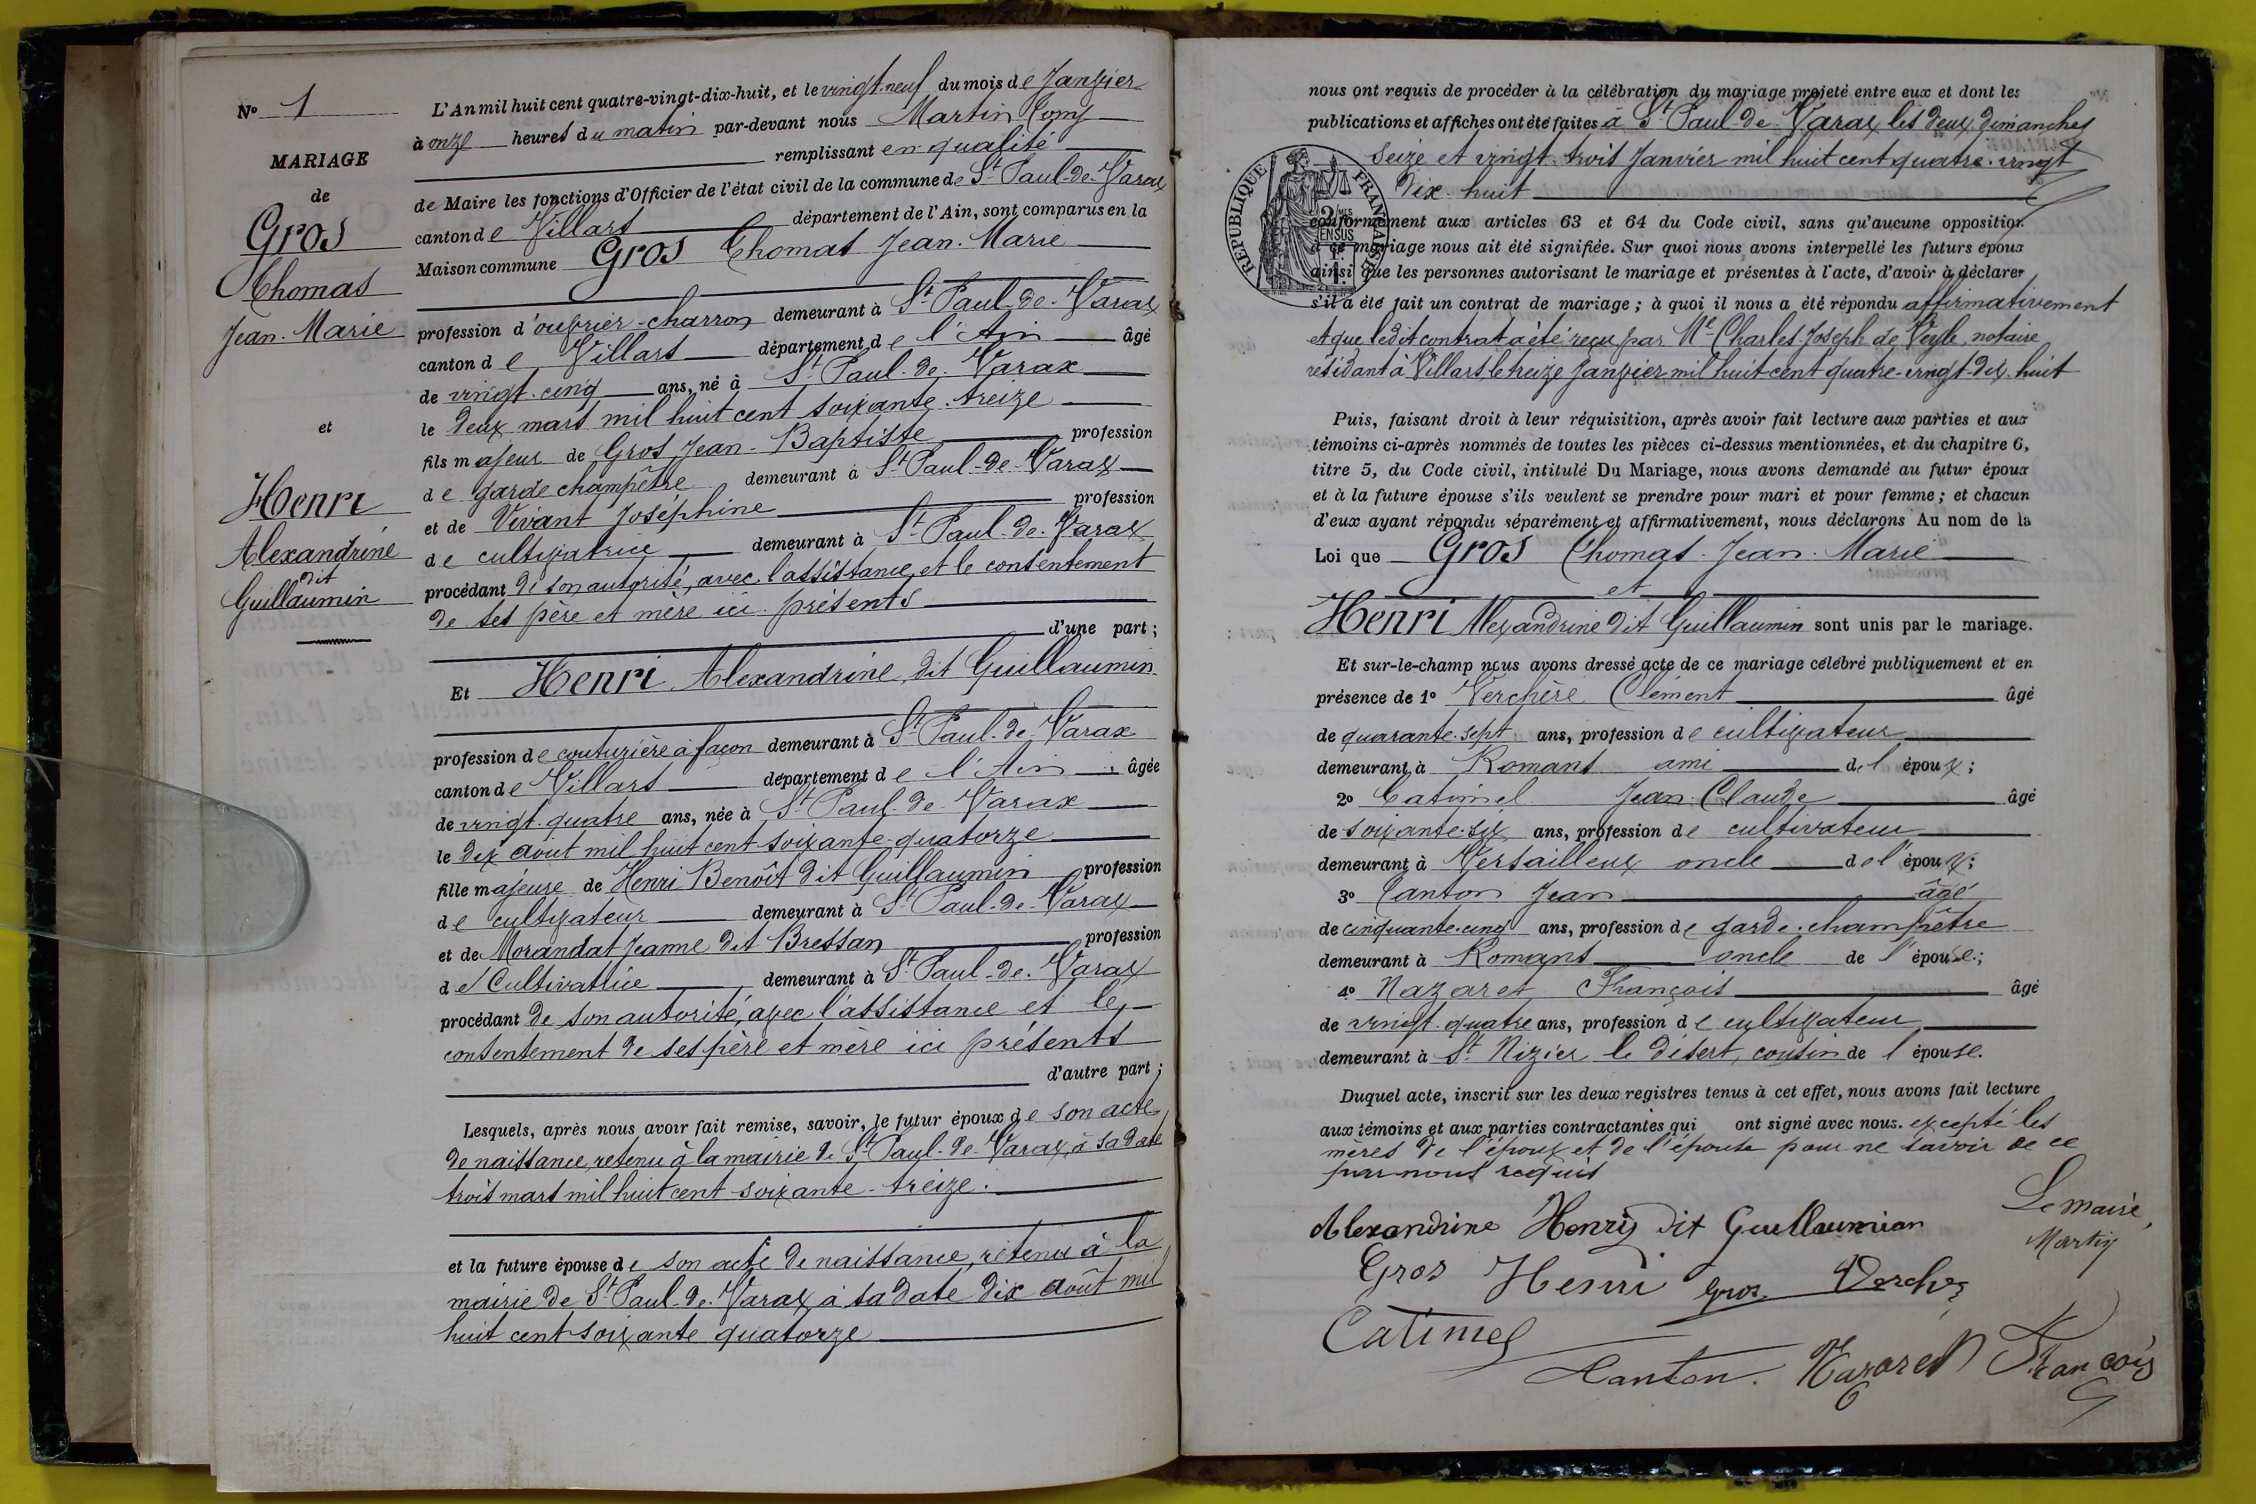 N° 1
MARIAGE
de
Gros
Thomas
Jean-Marie
et
Henri
Alexandrine
dit
Guillaumin
L'An mil huit cent quatre-vingt-dix-huit, et le vingt-neuf du mois de Janvier
à onze heures du matin par-devant nous Martin Cony
remplissant en qualité
de Maire les fonctions d'Officier de l'état civil de la commune de St Paul-de-Varax
canton de Villars département de l'Ain, sont comparus en la
Maison commune Gros Thomas Jean-Marie
profession d'ouvrier-charron demeurant à St Paul-de-Varax
canton de Villars département de l'Ain âgé
de vingt-cinq ans, né à St Paul-de-Varax
le deux mars mil huit cent soixante-treize
fils majeur de Gros Jean-Baptiste profession
de garde champêtre demeurant à St Paul-de-Varax
et de Vivant Joséphine profession
de cultivatrice demeurant à St Paul-de-Varax
procédant de son autorité, avec l'assistance et le consentement
de ses père et mère ici présents
d'une part ;
Et Henri Alexandrine dit Guillaumin
profession de couturière à façon demeurant à St Paul-de-Varax
canton de Villars département de l'Ain âgée
de vingt-quatre ans, née à St Paul-de-Varax
le dix août mil huit cent soixante-quatorze
fille majeure de Henri Benoît dit Guillaumin profession
de cultivateur demeurant à St Paul-de-Varax
et de Morandat Jeanne dit Bressan profession
de Cultivatrice demeurant à St Paul-de-Varax
procédant de son autorité, avec l'assistance et le
consentement de ses père et mère ici présents
d'autre part ;
Lesquels, après nous avoir fait remise, savoir, le futur époux de son acte
de naissance, retenu à la mairie de St Paul-de-Varax, à sa date
trois mars mil huit cent soixante-treize.
et la future épouse de son acte de naissance, retenu à la
mairie de St Paul-de-Varax à sa date dix août mil
huit cent soixante quatorze
nous ont requis de procéder à la célébration du mariage projeté entre eux et dont les
publications et affiches ont été faites à St Paul-de-Varax les deux dimanches
seize et vingt-trois Janvier mil huit cent quatre-vingt
dix-huit
RÉPUBLIQUE FRANÇAISE
2 MES EN SUS
conformément aux articles 63 et 64 du Code civil, sans qu'aucune opposition
à ce mariage nous ait été signifiée. Sur quoi nous avons interpellé les futurs époux
ainsi que les personnes autorisant le mariage et présentes à l'acte, d'avoir à déclarer
s'il a été fait un contrat de mariage ; à quoi il nous a été répondu affirmativement
et que ledit contrat a été reçu par Me Charles-Joseph de Veyle, notaire
résidant à Villars, le treize Janvier mil huit cent quatre-vingt-dix-huit
Puis, faisant droit à leur réquisition, après avoir fait lecture aux parties et aux
témoins ci-après nommés de toutes les pièces ci-dessus mentionnées, et du chapitre 6,
titre 5, du Code civil, intitulé Du Mariage, nous avons demandé au futur époux
et à la future épouse s'ils veulent se prendre pour mari et pour femme ; et chacun
d'eux ayant répondu séparément et affirmativement, nous déclarons Au nom de la
Loi que Gros Thomas Jean-Marie
et
Henri Alexandrine dit Guillaumin sont unis par le mariage.
Et sur-le-champ nous avons dressé acte de ce mariage célébré publiquement et en
présence de 1° Verchère Clément âgé
de quarante-sept ans, profession de cultivateur
demeurant à Romans ami de l'époux ;
2° Catimel Jean-Claude âgé
de soixante-six ans, profession de cultivateur
demeurant à Versailleux oncle de l'époux ;
3° Canton Jean âgé
de cinquante-cinq ans, profession de garde-champêtre
demeurant à Romans oncle de l'épouse ;
4° Nazaret François âgé
de vingt-quatre ans, profession de cultivateur
demeurant à St Nizier le désert, cousin de l'épouse.
Duquel acte, inscrit sur les deux registres tenus à cet effet, nous avons fait lecture
aux témoins et aux parties contractantes qui ont signé avec nous. excepté les
mères de l'époux et de l'épouse pour ne savoir de ce
par nous requis
Le maire,
Martin
Alexandrine Henri dit Guillaumian
Gros Henri Gros Verch
Catimel
Canton. Nazaret François